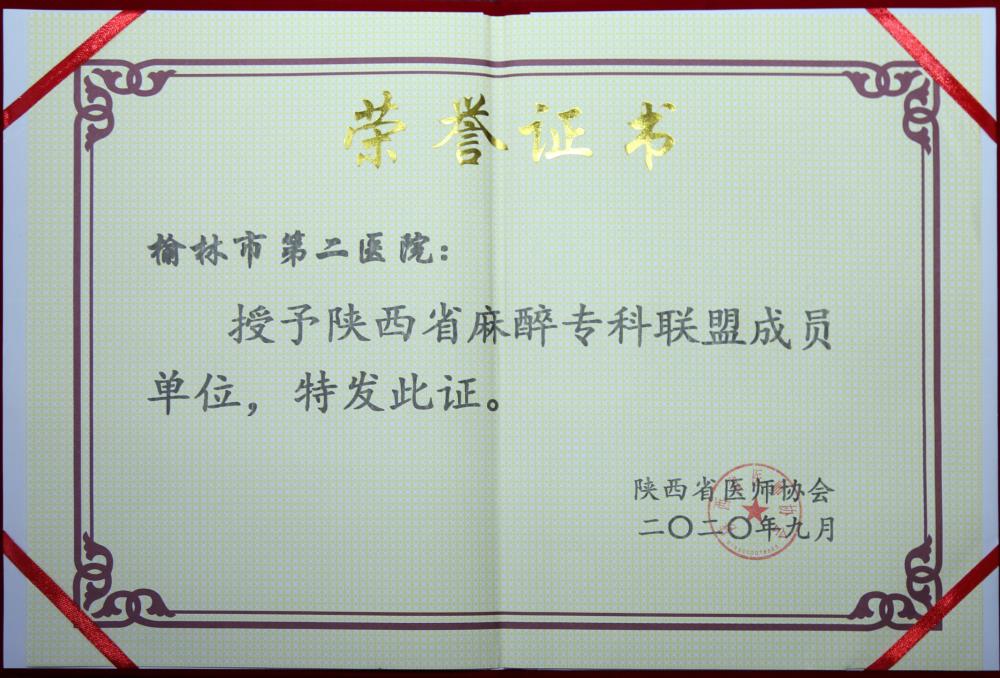 荣誉证书
榆林市第二医院：
授予陕西省麻醉专科联盟成员
单位，特发此证。
陕西省医师协会
二〇二〇年九月